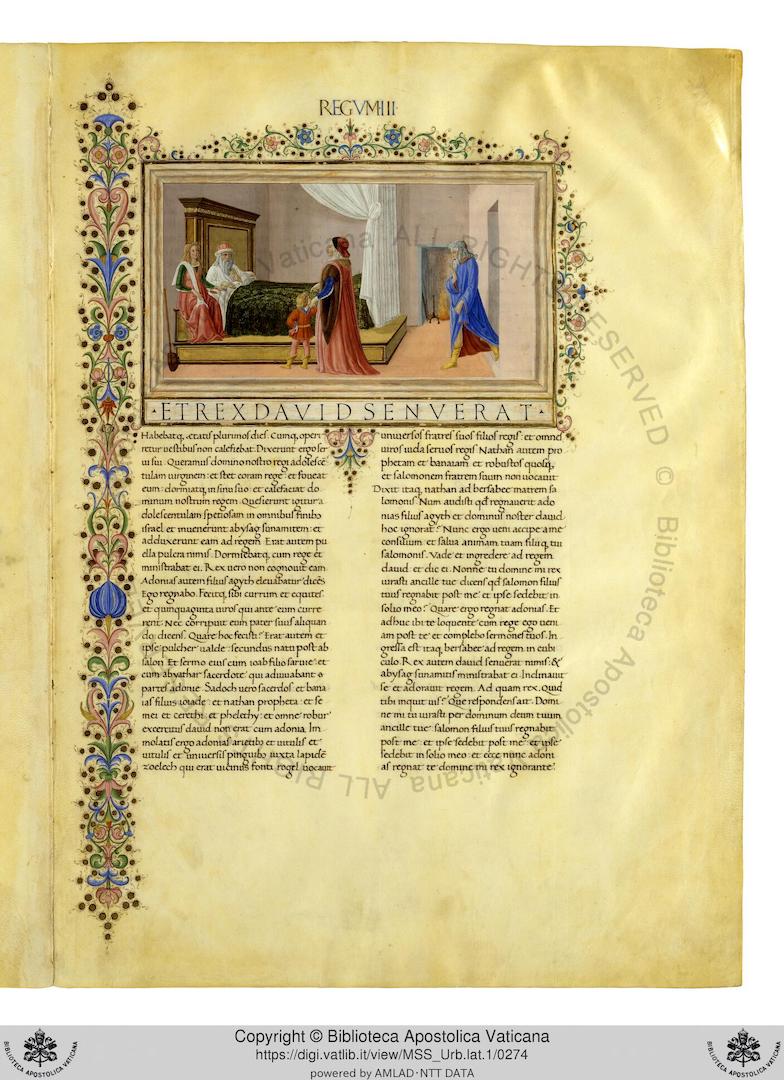 REGVM III
ET REX DAVID SENVERAT
Habebatq; ętatis plurimos dies. Cumq; operi
retur uestibus non calefiebat. Dixerunt ergo ser
ui sui. Queramus domino nostro regi adolescē
tulam uirginem: et stet coram rege: et foueat
eum: dormiatq; in sinu suo: et calefaciat do
minum nostrum regem. Quesierunt igitur a
dolescentulam spetiosam in omnibus finibꝰ
israel et inuenerunt abysag sunamitem: et
adduxerunt eam ad regem. Erat autem pu
ella pulcra nimis. Dormiebatq; cum rege et
ministrabat ei. Rex uero non cognouit eam
Adonias autem filius agyth eleuabatur dicēs
Ego regnabo. Fecitq; sibi currum et equites
et quinquaginta uiros qui ante eum curre
rent. Nec corripuit eum pater suus aliquan
do: dicens. Quare hoc fecisti? Erat autem et
ipse pulcher ualde: secundus natu post ab
salon. Et sermo eius cum ioab filio saruie: et
cum abyathar sacerdote qui adiuuabant
partes adonie. Sadoch uero sacerdos et bana
ias filius ioiade: et nathan propheta: et se
mei et cerethi et phelethy: et omne robur
exercitus dauid non erat cum adonia. Im
molatis ergo adonias arietibꝰ et uitulis et
uitulis et uniuersis pinguibꝰ iuxta lapidē
zoelech qui erat uicinus fonti rogel: uocauit
uniuersos fratres suos filios regis: et omnes
uiros iuda seruos regis. Nathan autem pro
phetam et banaiam et robustos quosq;
et salomonem fratrem suum non uocauit
Dixit itaq; nathan ad bersabee matrem sa
lomonis. Num audisti qđ regnauerit ado
nias filius agyth et dominus noster dauid
hoc ignorat? Nunc ergo ueni accipe a me
consilium et salua animam tuam filiiq; tui
salomonis. Vade et ingredere ad regem
dauid et dic ei. Nonne tu domine mi rex
iurasti ancille tue dicens qđ salomon filius
tuus regnabit post me et ipse sedebit in
solio meo? Quare ergo regnat adonias. Et
adhuc ibi te loquente cum rege ego ueni
am post te et complebo sermones tuos. In
gressa est itaq; bersabee ad regem in cubi
culo. Rex autem dauid senuerat nimis: &
abysag sunamitis ministrabat ei. Inclinauit
se et adorauit regem. Ad quam rex. Quid
tibi inquit uis? Que respondens ait. Domi
ne mi tu iurasti per dominum deum tuum
ancille tue salomon filius tuus regnabit
post me et ipse sedebit post me et ipse
sedebit in solio meo: et ecce nunc adoni
as regnat te domine mi rex ignorante.
Vaticana ALL RIGHTS RESERVED © Biblioteca Apostolica Vaticana ALL RI
Copyright © Biblioteca Apostolica Vaticana
https://digi.vatlib.it/view/MSS_Urb.lat.1/0274
powered by AMLAD·NTT DATA
BIBLIOTECA APOSTOLICA VATICANA
BIBLIOTECA APOSTOLICA VATICANA